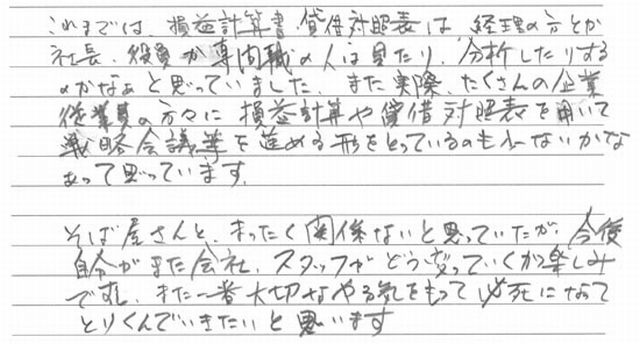 これまでは、損益計算書・貸借対照表は、経理の方とか
社長、役員か専門職の人は見たり、分析したりする
のかなぁと思っていました。また実際、たくさんの企業
従業員の方々に損益計算や貸借対照表を用いて
戦略会議等を進める形をとっているのも少ないかな
あって思っています。
そば屋さんと、まったく関係ないと思っていたが、今後
自分がまた会社、スタッフがどう変っていくか楽しみ
です。また一番大切なやる気をもって必死になって
とりくんでいきたいと思います